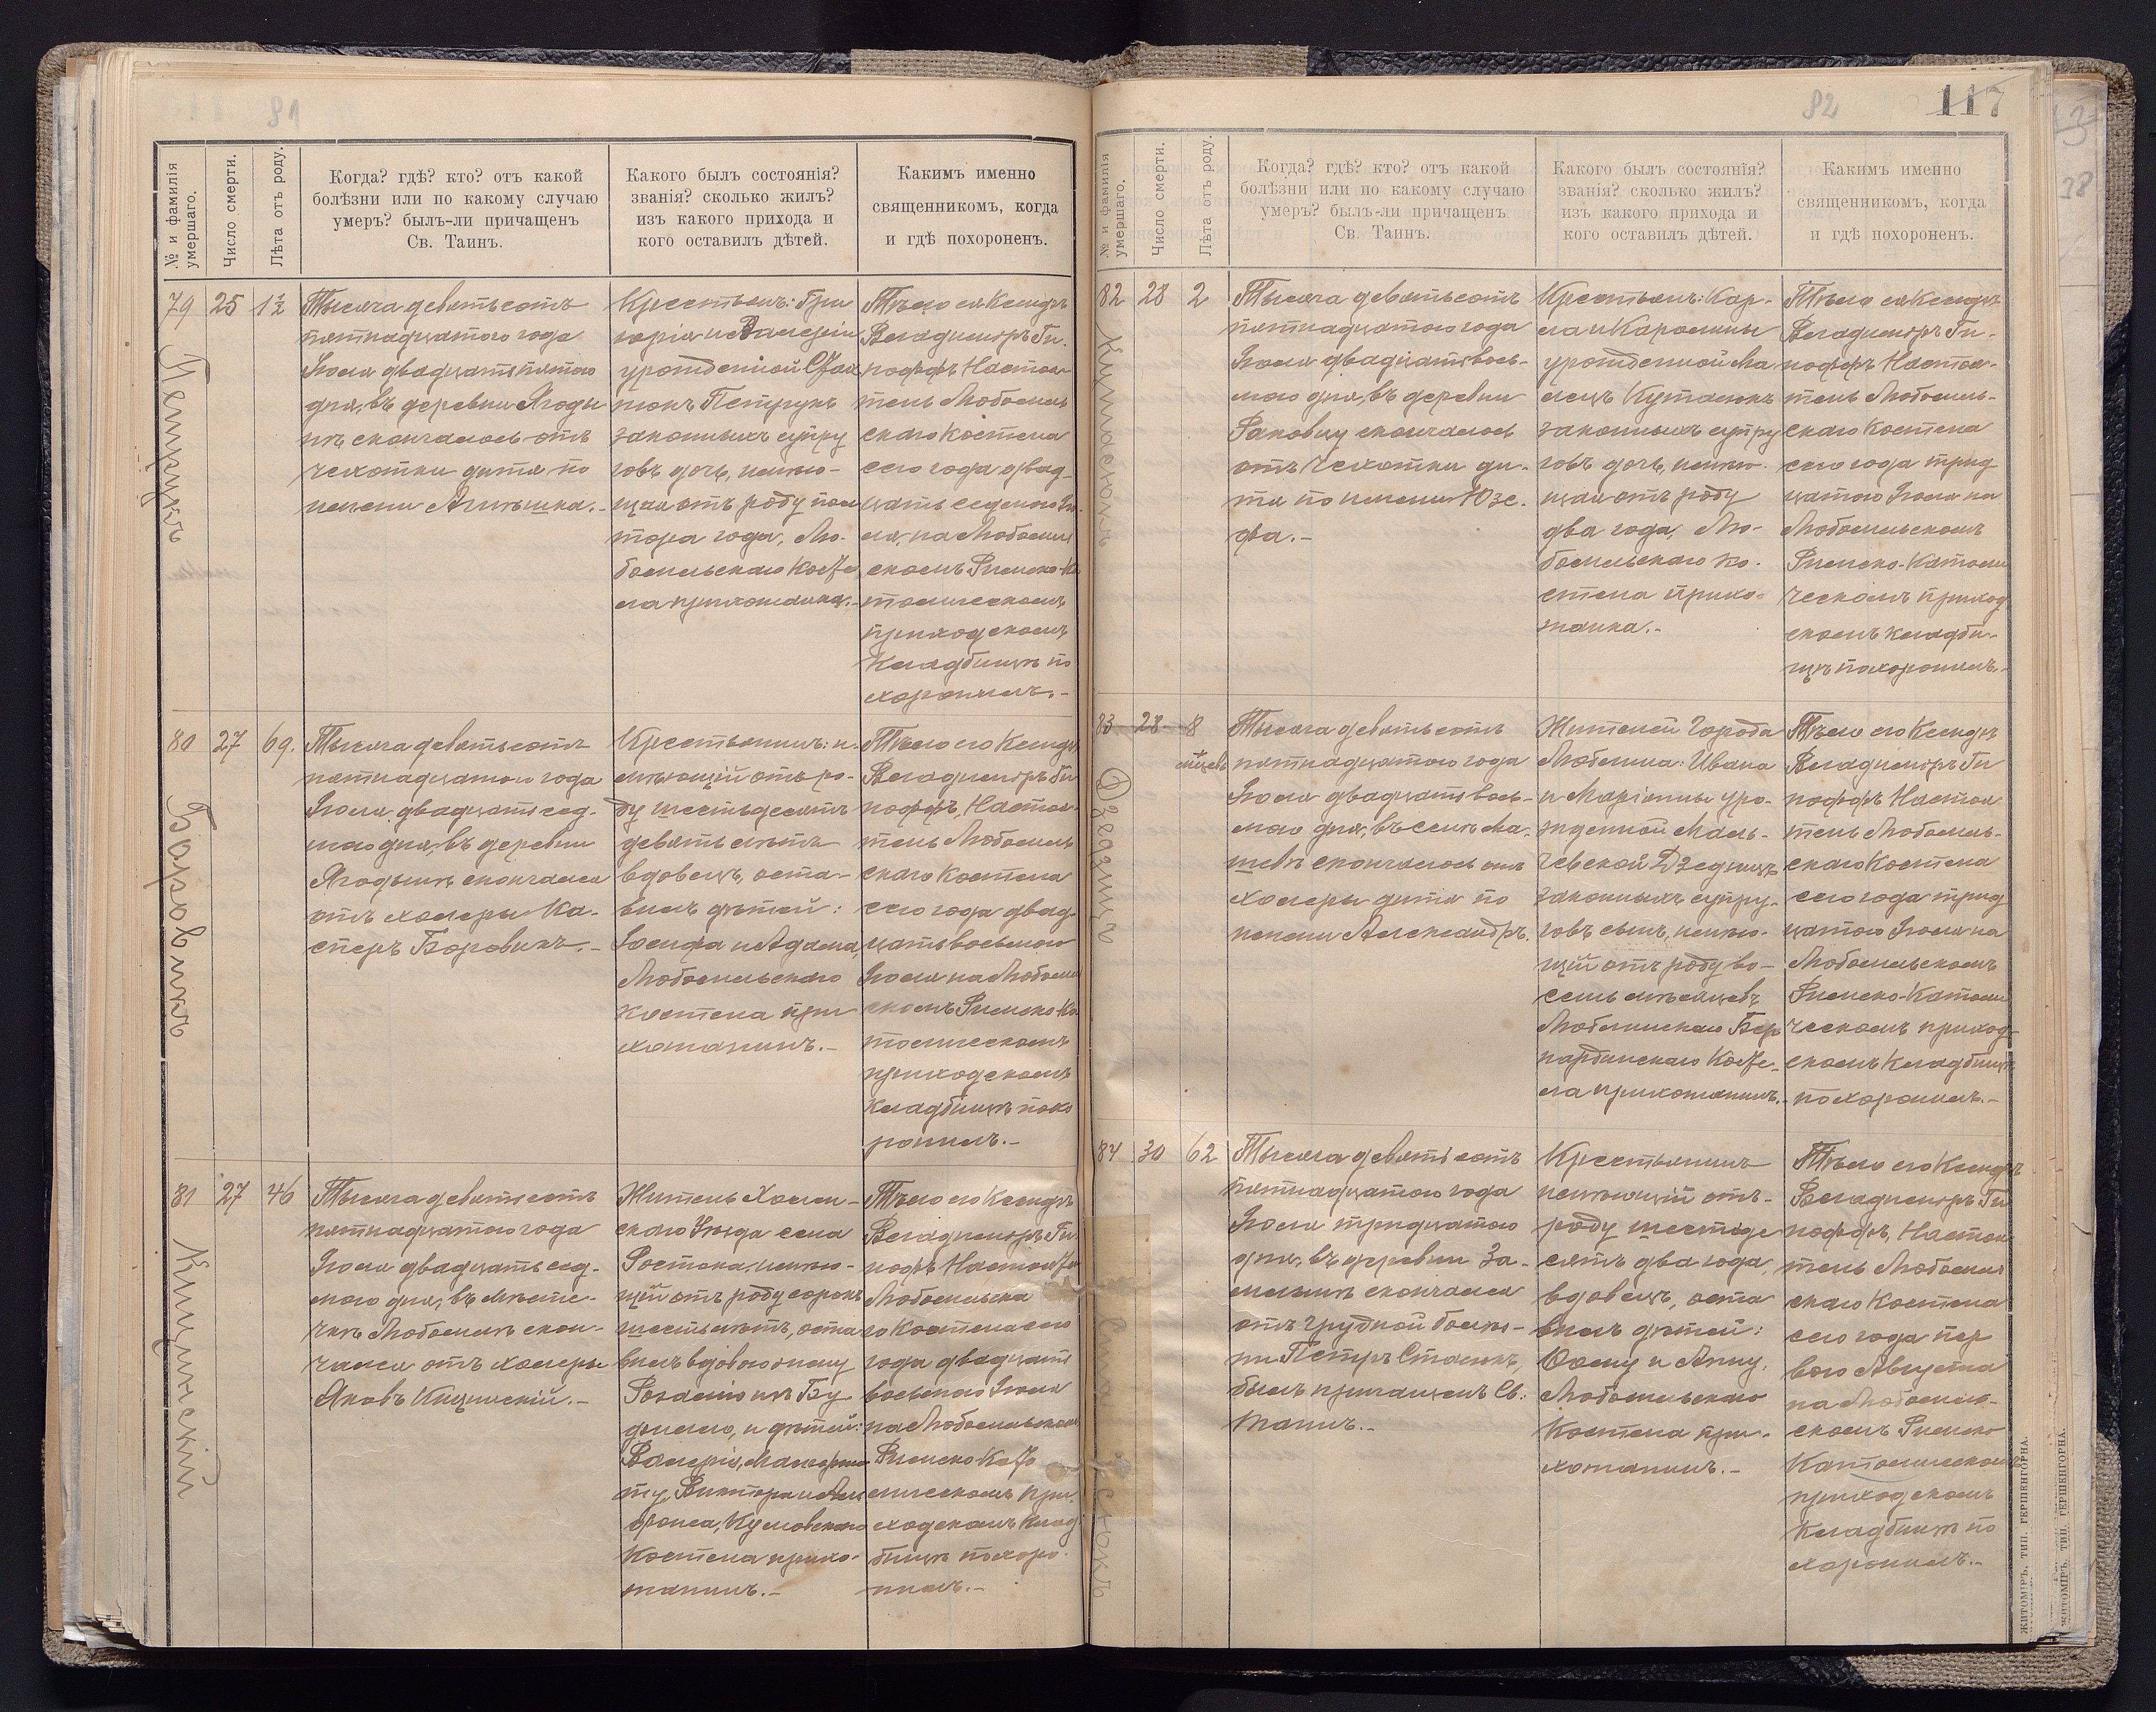 81
№ и фамилія умершаго.
Число смерти.
Лѣта отъ роду.
Когда? гдѣ? кто? отъ какой
болѣзни или по какому случаю
умеръ? былъ-ли причащенъ
Св. Таинъ.
Какого былъ состоянія?
званія? сколько жилъ?
изъ какого прихода и
кого оставилъ дѣтей.
Каким именно
священникомъ, когда
и гдѣ похороненъ.
79
Петрукъ
25
1½
Тысяча девятьсотъ
пятнадцатого года
Іюля двадцать пятого
дня, въ деревни Ягоды
нѣ скончалось отъ
чахотки дитя по
имени
Крестьянъ: Гри
горія и Валеріи
урожденной
нюкъ Петрукъ
законныхъ супру
говъ дочь, имѣю-
щая отъ роду пол
тора года, Лю-
бомльскаго Косте
ла прихожанка.-
Тѣло ея Ксендзъ
Владиміръ Ги-
поффъ Настоя-
тель Любомль
скаго Костела
сего года двад-
цать седьмого Iю-
ля, на Любомль
скомъ Римско-Ка
толическомъ
приходскомъ
Кладбищѣ по
хоронилъ.-
80
Боровикъ
27
69.
Тысяча девятьсотъ
пятнадцатого года
Іюля двадцать сед-
мого дня, въ деревни
Ягодынѣ скончался
отъ холеры Ка-
сперъ Боровикъ.-
Крестьянинъ: и-
мѣющій отъ ро-
ду шестьдесятъ
девять лѣтъ
вдовецъ, оста-
вилъ дѣтей:
Іосифа и Адама,
Любомльскаго
Костела при
хожанинъ.-
Тѣло его Ксендзъ
Владиміръ Ги
поффъ, Настоя-
тель Любомль
скаго Костела
сего года двад-
цать восьмого
Іюля на Любомль
скомъ Римско-Ка
толическомъ
приходскомъ
Кладбищѣ похо
ронилъ.-
81
Кицинскій
27
46
Тысяча девятьсотъ
пятнадцатого года
Іюля двадцать сед-
мого дня, въ мѣсте-
чкѣ Любомлѣ скон-
чался отъ холеры
Яковъ Кицинскій.-
Житель Холм-
скаго Уѣзда села
Ростока, имѣю-
щій отъ роду сорокъ
шесть лѣтъ, оста
вилъ вдовою жену
Розалію изъ
и дѣтей:
Валерія,
Виктора и
фонса,
Костела прихо-
жанинъ.-
Тѣло его Ксендзъ
Владиміръ Ги
пофъ Настоятель
Любомльска
го Костела сего
года двадцать
восьмого Іюля
на Любомльскомъ
Римско Като
лическомъ При-
ходскомъ Клад
бищѣ похоро-
нилъ.-
82
117
№ и фамилія умершаго.
Число смерти.
Лѣта отъ роду.
Когда? гдѣ? кто? отъ какой
болѣзни или по какому случаю
умеръ? былъ-ли причащенъ
Св. Таинъ.
Какого былъ состоянія?
званія? сколько жилъ?
изъ какого прихода и
кого оставилъ дѣтей.
Каким именно
священникомъ, когда
и гдѣ похороненъ.
82
28
2
Тысяча девятьсотъ
пятнадцатого года
Іюля двадцать вось-
мого дня, въ деревни
скончалось
отъ чахотки ди-
тя по имени Юзе-
фа.-
Крестьянъ: Кар-
ла и Каролины
урожденной Ма
законныхъ супру
говъ дочь, имѣю-
щая отъ роду
два года, Лю-
бомльскаго Ко-
стела прихо-
жанка.-
Тѣло ея Ксендзъ
Владиміръ Ги-
поффъ Настоя-
тель Любомль-
скаго Костела
сего года трид
цатого Іюля на
Любомльскомъ
Римско-Католи
ческомъ приход
скомъ кладби-
щѣ похоронилъ.-
83
28
8
мѣсяцевъ
Тысяча девятьсотъ
пятнадцатого года
Іюля двадцать вось-
мого дня, въ селѣ Ма-
шевѣ скончалось отъ
холеры дитя по
имени Александръ.
Жителей Города
Люблина: Ивана
и Маріанны уро-
жденной Маль-
чевской
законныхъ супру-
говъ сынъ, имѣю-
щій отъ роду во-
семь мѣсяцевъ
Люблинскаго Бер
нардинскаго Косте-
ла прихожанинъ.-
Тѣло его Ксендзъ
Владиміръ Ги
поффъ Настоя
тель Любомль-
скаго Костела
сего года трид
цатого Іюля на
Любомльскомъ
Римско-Католи
ческомъ приход-
скомъ Кладбищѣ
похоронилъ.-
84
30
62
Тысяча девятьсотъ
пятнадцатого года
Іюля тридцатого
дня, въ деревни За-
скончался
отъ грудной болѣз-
ни Петръ Сталюкъ,
былъ причащенъ Св:
Таинъ.-
Крестьянинъ
имѣющій отъ-
роду шестьде
сятъ два года,
вдовецъ, оста
вилъ дѣтей:
и Анну,
Любомльскаго
Костела при-
хожанинъ.-
Тѣло его Ксендзъ
Владиміръ Ги
поффъ, Настоя
тель Любомль
скаго Костела
сего года пер
вого Августа
на Любомль-
скомъ Римско
Католическомъ
приходскомъ
Кладбищѣ по
хоронилъ.-
ЖИТОМІРЪ. ТИП. ГЕРШЕНГОРНА.
ЖИТОМІРЪ. ТИП. ГЕРШЕНГОРНА.